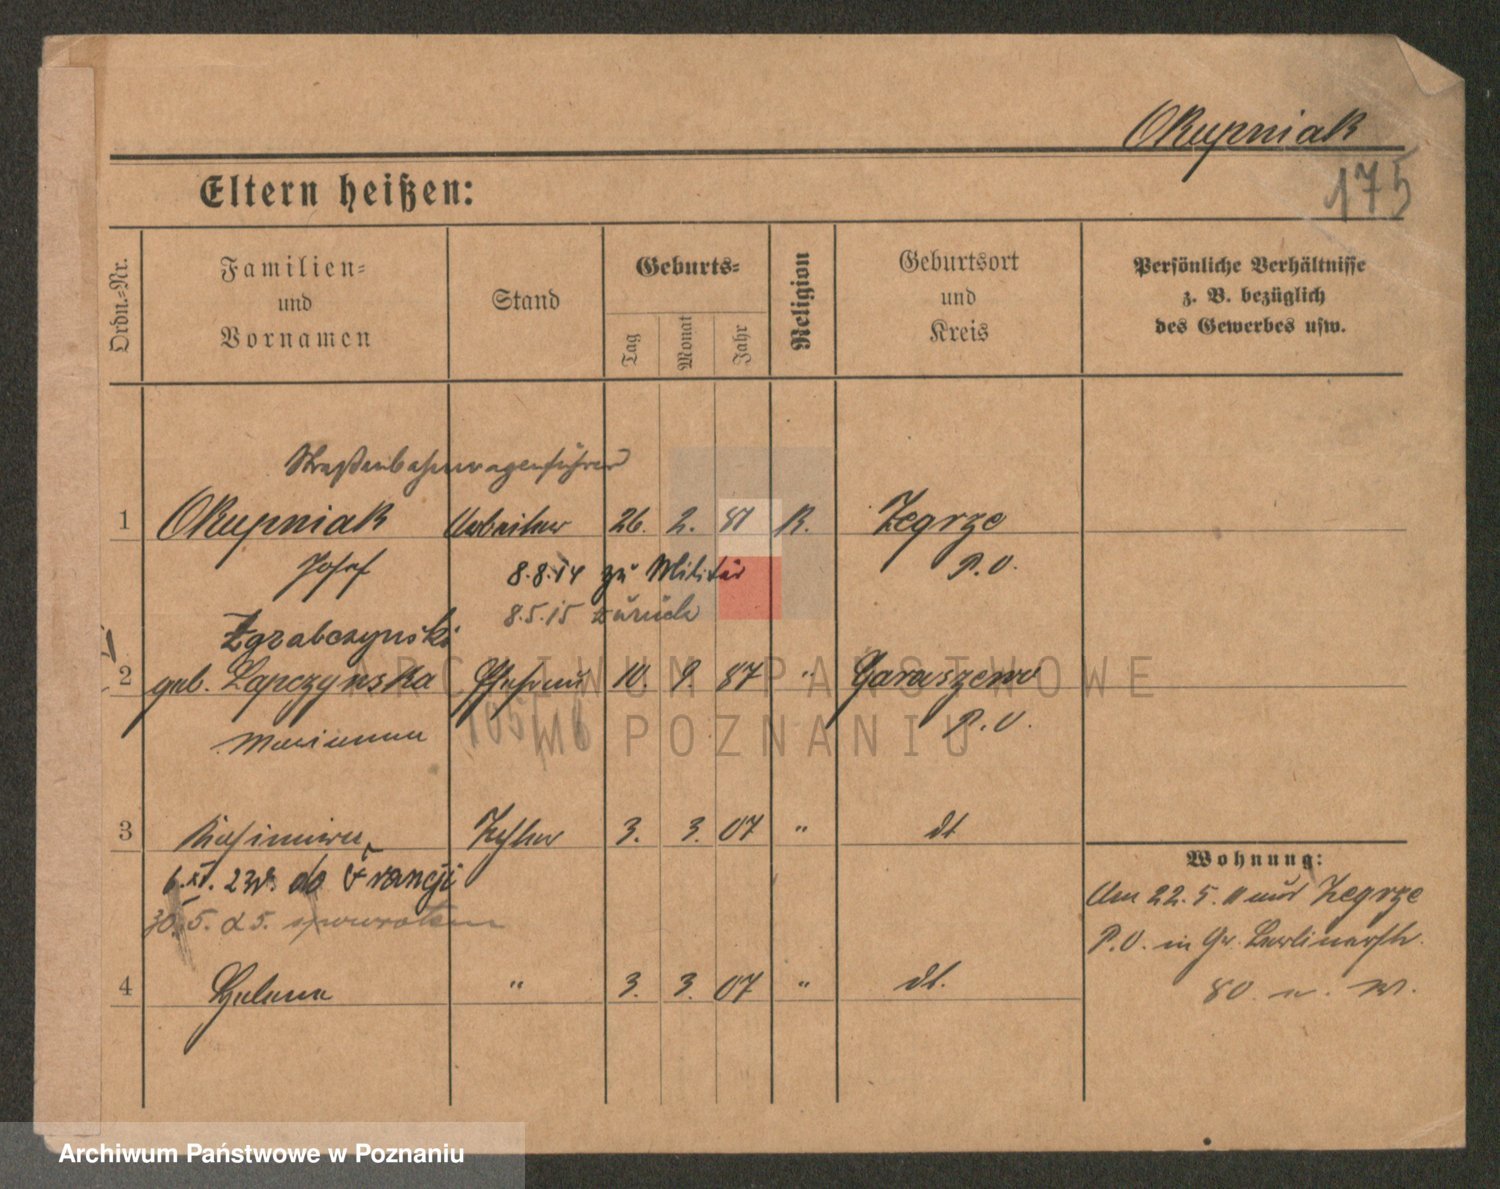 Okupniak
175
Eltern heißen:
Ordn.-Nr.
Familien-
und
Vornamen
Stand
Geburts-
Tag
Monat
Jahr
Religion
Geburtsort
und
Kreis
Persönliche Verhältnisse
z. B. bezüglich
des Gewerbes usw.
Straßenbahnwagenführer
1 Okupniak Arbeiter 26. 2. 81 K. Zegrze
Josef 8.8.14 zu Militär P. O.
8.5.15 zurück
Zgrabczynski
2 geb. Lapczynska Ehefrau 10. 9. 87 " Garaszewo
Marianna P. O.
3 Kasimira 3. 3. 07 " dt
6.XI. 23r. do Francji
30.5.25. spowrotem
4 Helena " 3. 3. 07 " dt.
Wohnung:
Am 22.5.11 aus Zegrze
P. O. in Gr. Berlinerstr.
80
ARCHIWUM PAŃSTWOWE
W POZNANIU
Archiwum Państwowe w Poznaniu